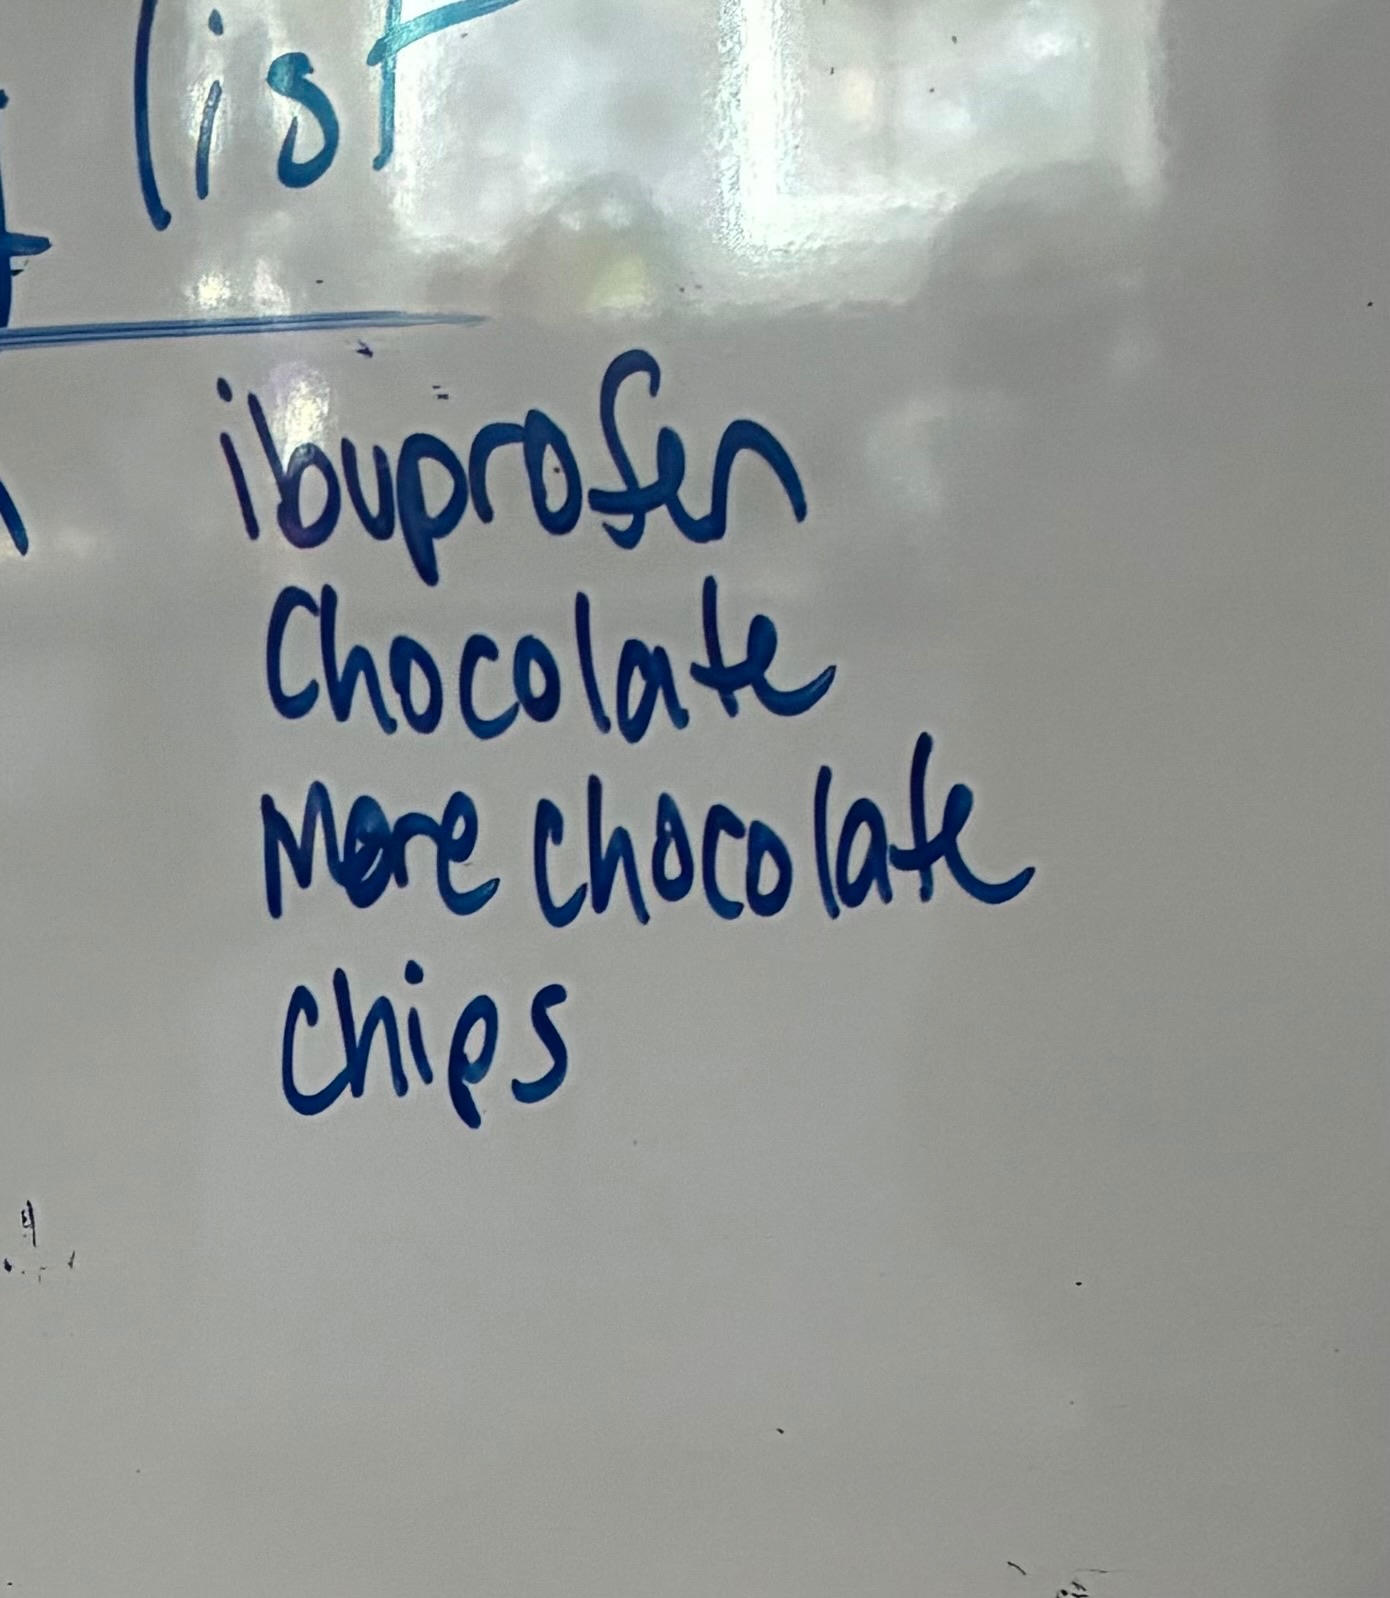 list
ibuprofen
Chocolate
More chocolate
chips